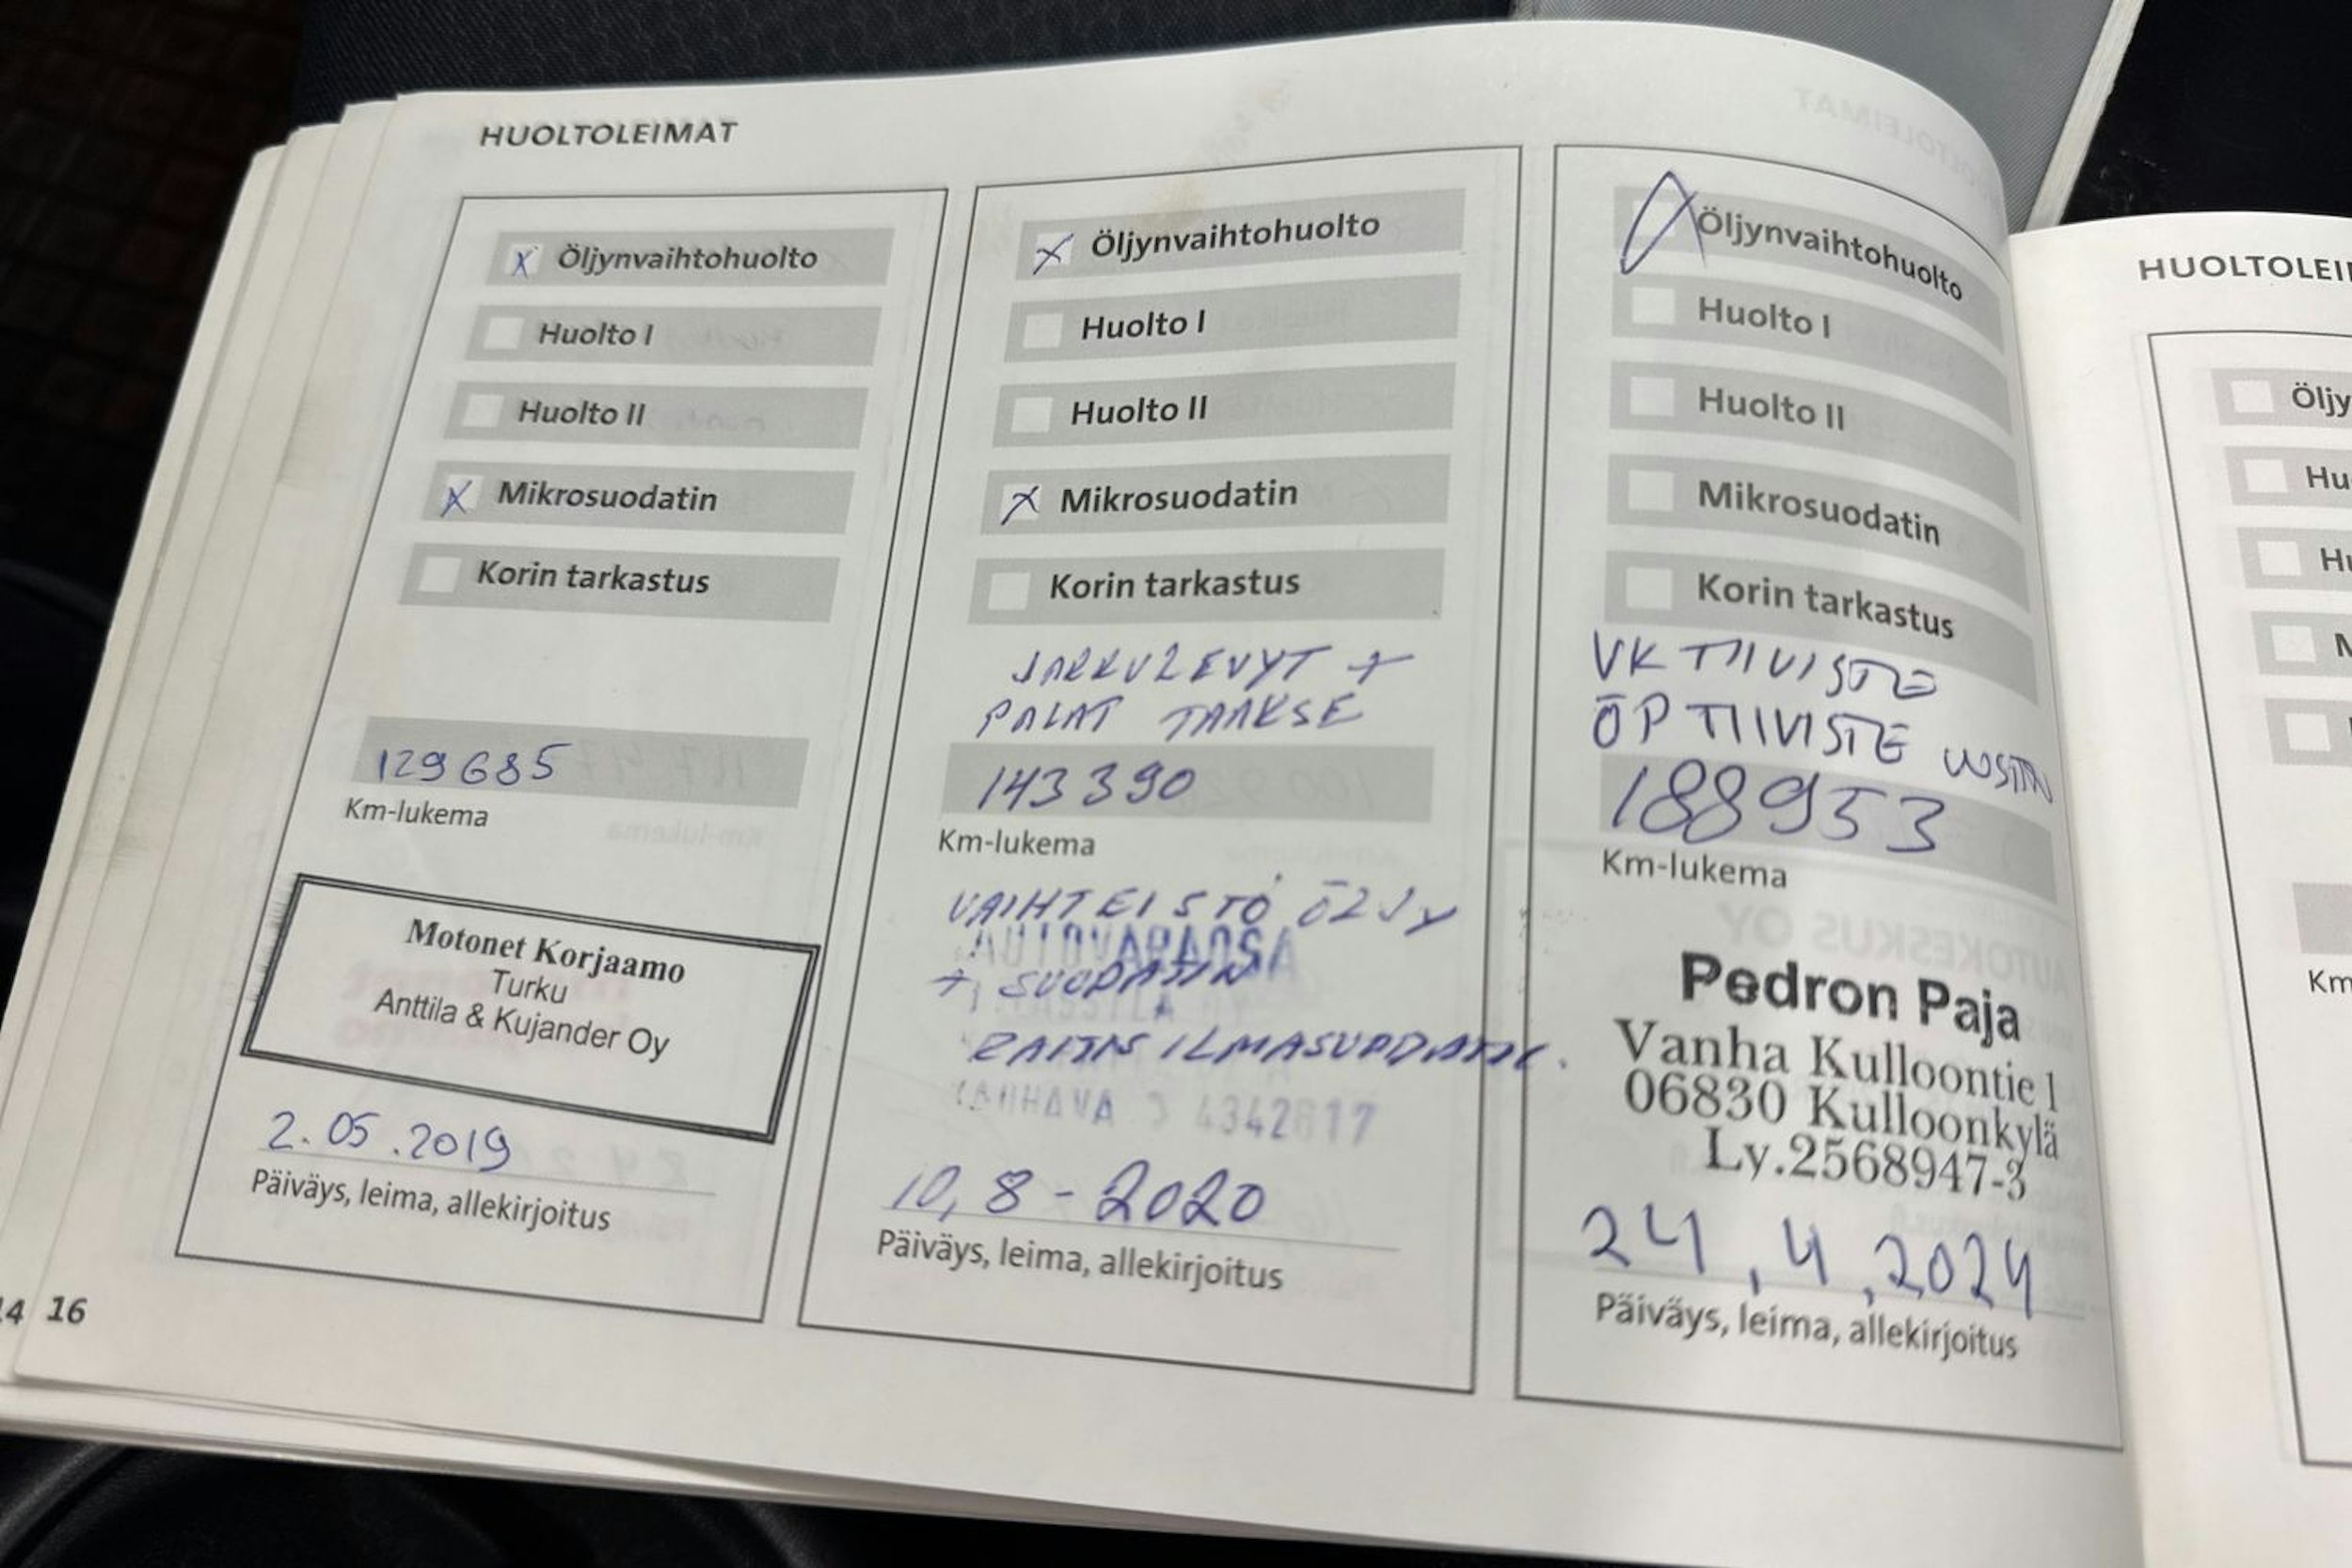 HUOLTOLEIMAT
X Öljynvaihtohuolto
Huolto I
Huolto II
X Mikrosuodatin
Korin tarkastus
129685
Km-lukema
Motonet Korjaamo
Turku
Anttila & Kujander Oy
2.05.2019
Päiväys, leima, allekirjoitus
X Öljynvaihtohuolto
Huolto I
Huolto II
X Mikrosuodatin
Korin tarkastus
JARRULEVYT +
PALAT TAAKSE
143390
Km-lukema
VAIHTEISTO ÖLJY
AUTOVARAOSA
+ SUODATIN
RAITIS ILMASUODATIN.
4342617
10,8-2020
Päiväys, leima, allekirjoitus
Öljynvaihtohuolto
Huolto I
Huolto II
Mikrosuodatin
Korin tarkastus
VK TIIVISTE
ÖP TIIVISTE UUSITTU
188953
Km-lukema
Pedron Paja
Vanha Kulloontie 1
06830 Kulloonkylä
Ly.2568947-3
24,4,2024
Päiväys, leima, allekirjoitus
14 16
HUOLTOLEI
Öljy
Hu
Hu
M
Km